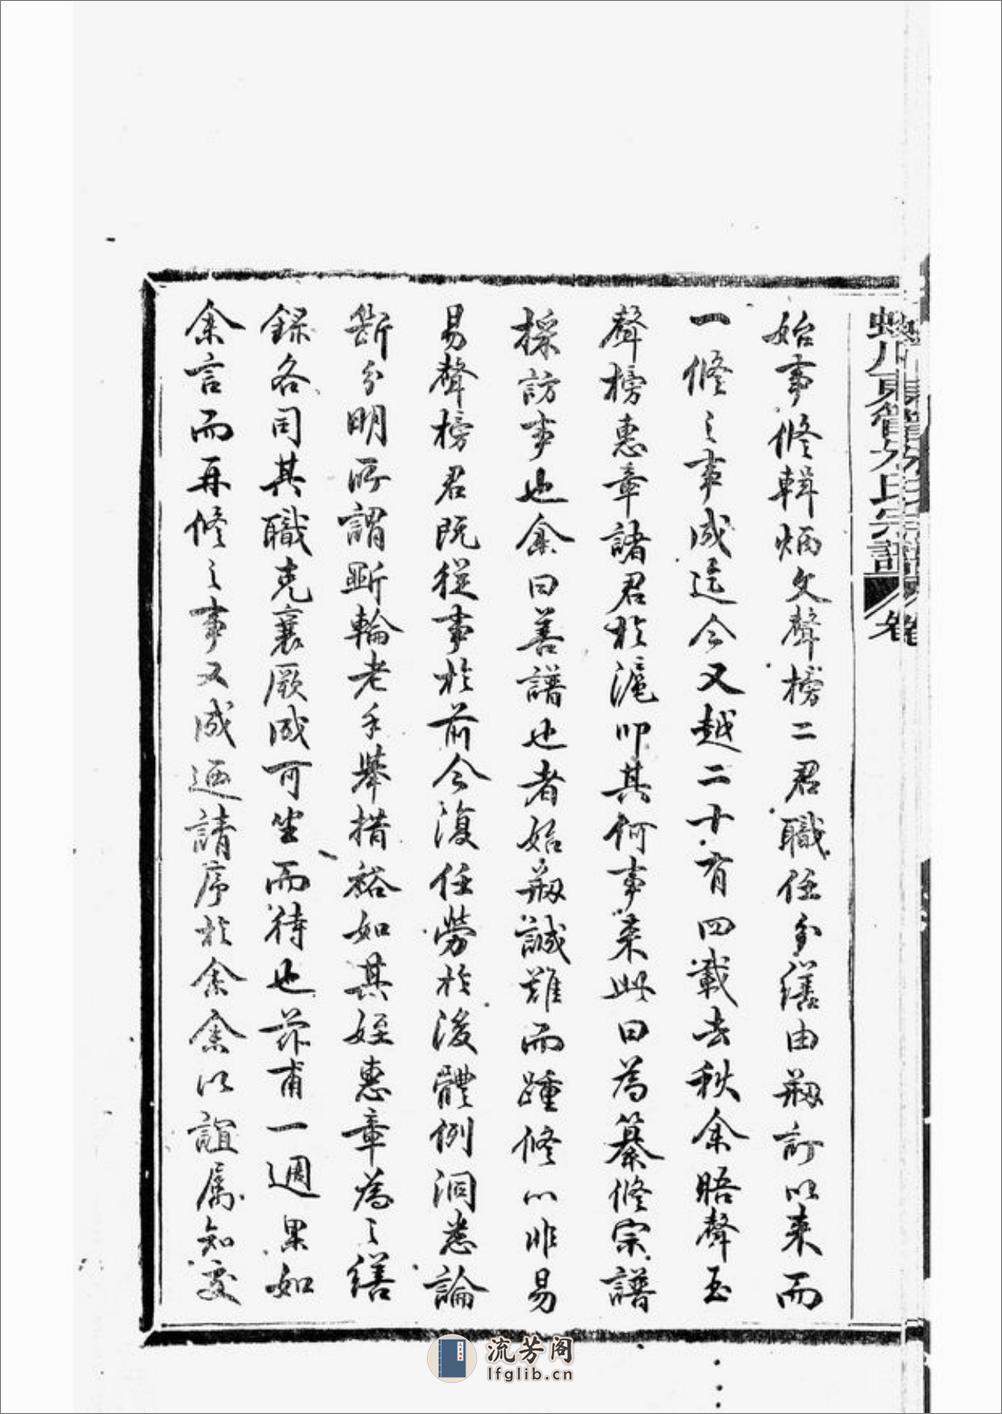 川東管分氏宗譜 卷
始事修輯炳文聲榜二君職任分繕由剏訂以來而
一修之事成迄今又越二十有四載去秋余晤聲玉
聲榜惠章諸君於滬叩其何事來此曰為纂修宗譜
採訪事也余曰善譜也者始剏誠難而踵修亦非易
易聲榜君既從事於前今復任勞於後體例洞悉論
斷分明所謂斲輪老手舉措裕如其姪惠章為之繕
錄各司其職克襄厥成可坐而待也茲甫一週果如
余言而再修之事又成迺請序於余余以誼屬知交
流芳阁
lfglib.cn